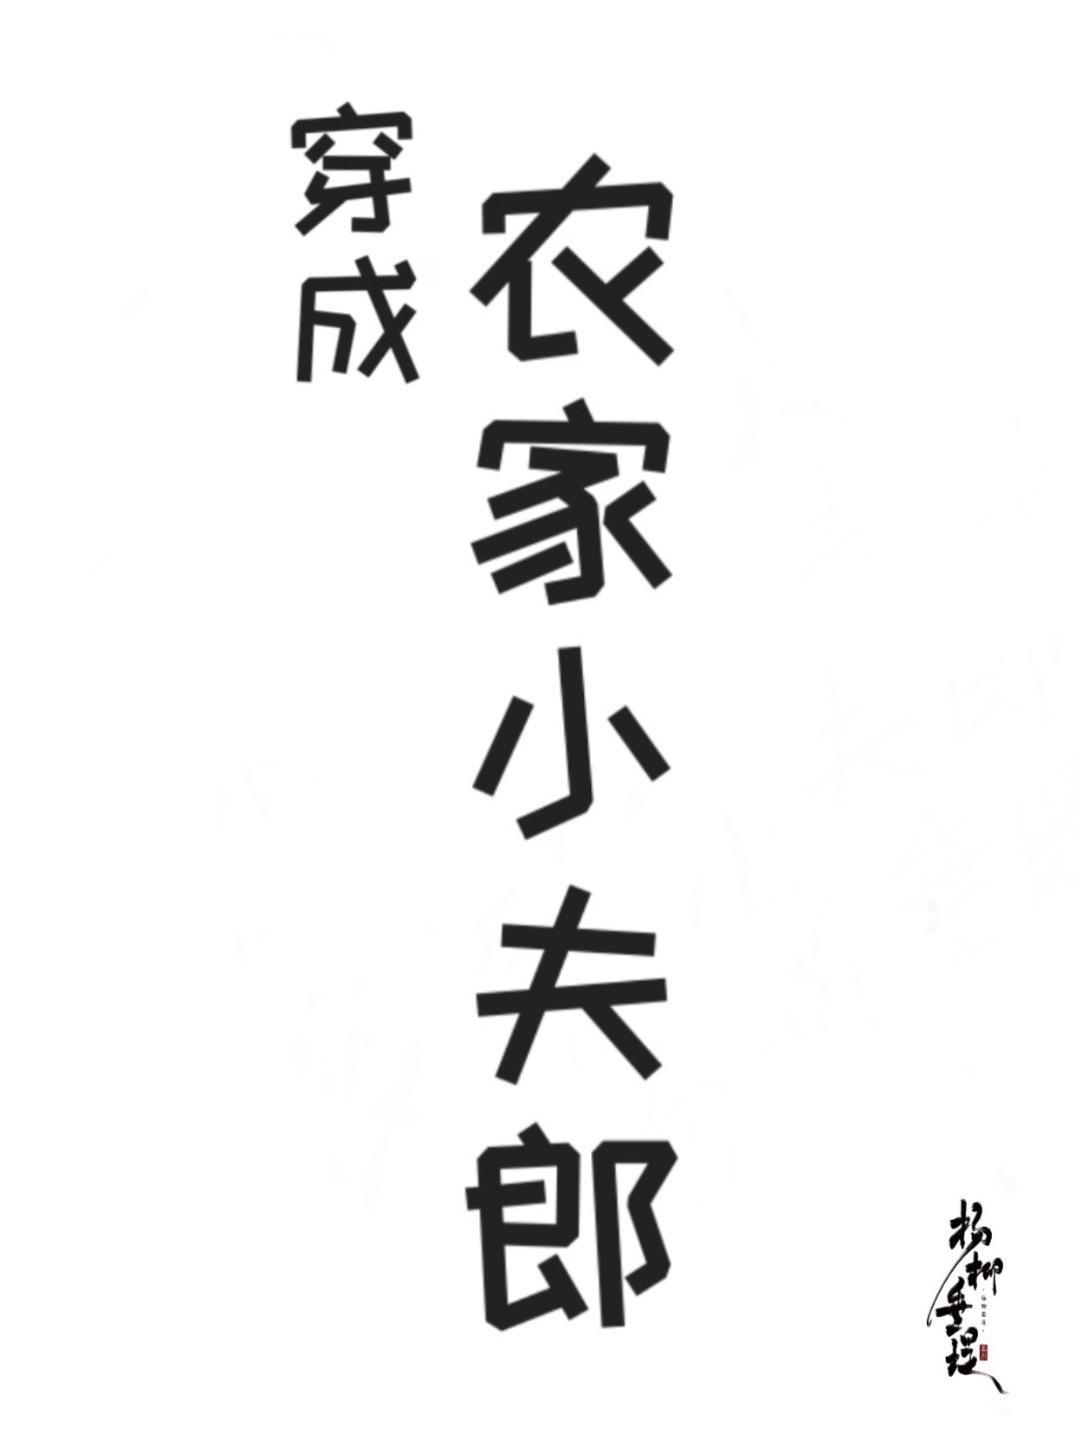 穿成
农家小夫郎
杨柳垂堤